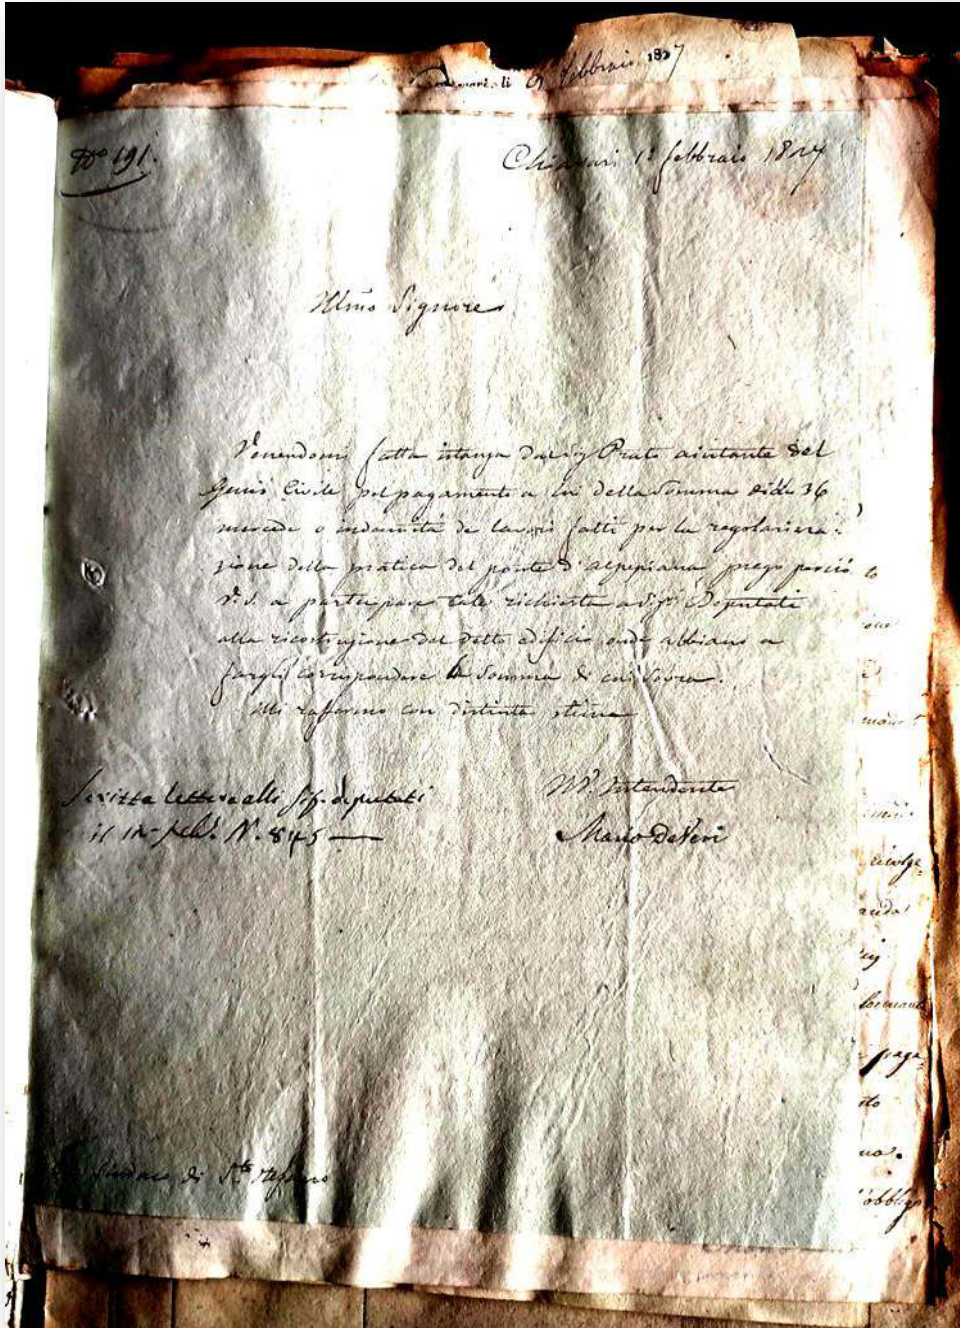 li 9 febbraio 1827
N.o 191.
Chiavari 1.o febbraio 1827
Illmo Signore
Venendomi fatta istanza dal Sig Prato aiutante del
Genio Civile pel pagamento a lui della Somma di 36
mercede o indennità de lavori fatti per la regolarizza:
zione della pratica del ponte d'alpepiana prego perciò
V.S. a partecipare tale richiesta a Sigri Deputati
alla ricostruzione del detto edificio onde abbiano a
fargli corrispondere la Somma di cui Sovra.
Mi raffermo con distinta stima
Scritta lettera alli Sig. deputati
il N. 845
Intendente
Sindaco di S.to Stefano
to
rivolge
paga
uo.
obbligo